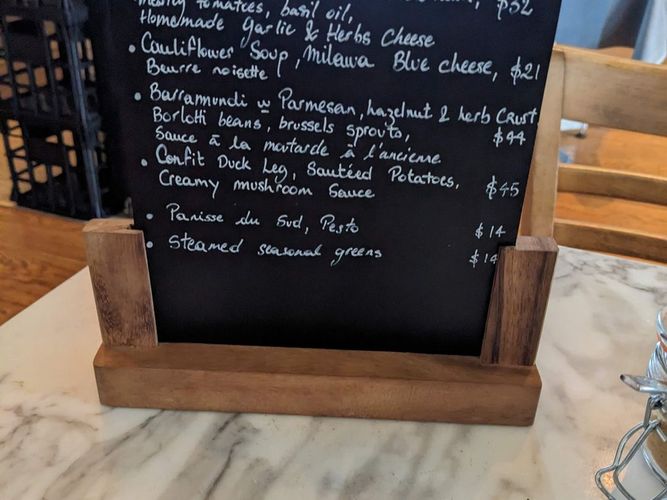 tomatoes, basil oil, $32
Homemade Garlic & Herbs Cheese
• Cauliflower Soup, Milawa Blue cheese, $21
Beurre noisette
• Barramundi w Parmesan, hazelnut & herb Crust,
Borlotti beans, brussels sprouts, $44
Sauce à la moutarde à l'ancienne
• Confit Duck Leg, Sautéed Potatoes,
Creamy mushroom Sauce $45
• Panisse du Sud, Pesto $14
• Steamed seasonal greens $14